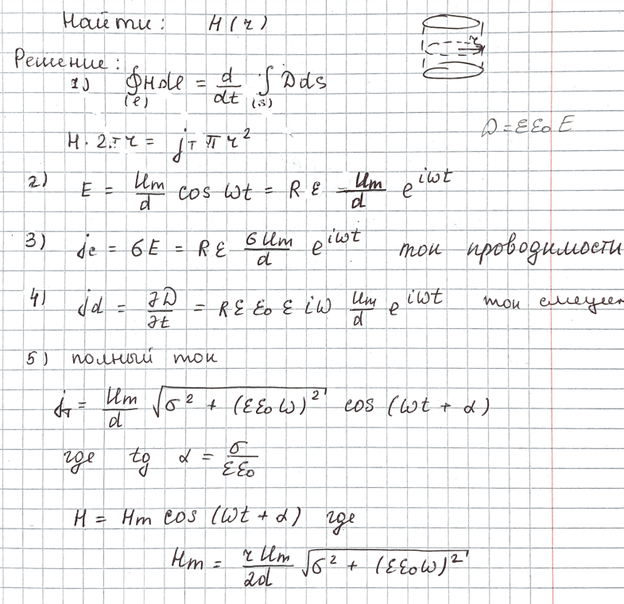 Найти: H(r)
r
Решение:
1) ∮(l) Hdl = d/dt ∫(s) Dds
D = εε₀E
H · 2πr = jт πr²
2) E = Um/d cos ωt = Rε Um/d e^iωt
3) jc = σE = Rε σUm/d e^iωt ток проводимости
4) jd = ∂D/∂t = Rε ε₀ ε iω Um/d e^iωt ток смещен
5) полный ток
jт = Um/d √(σ² + (εε₀ω)²) cos (ωt + α)
где tg α = σ/εε₀
H = Hm cos (ωt + α) где
Hm = rUm/2d √(σ² + (εε₀ω)²)